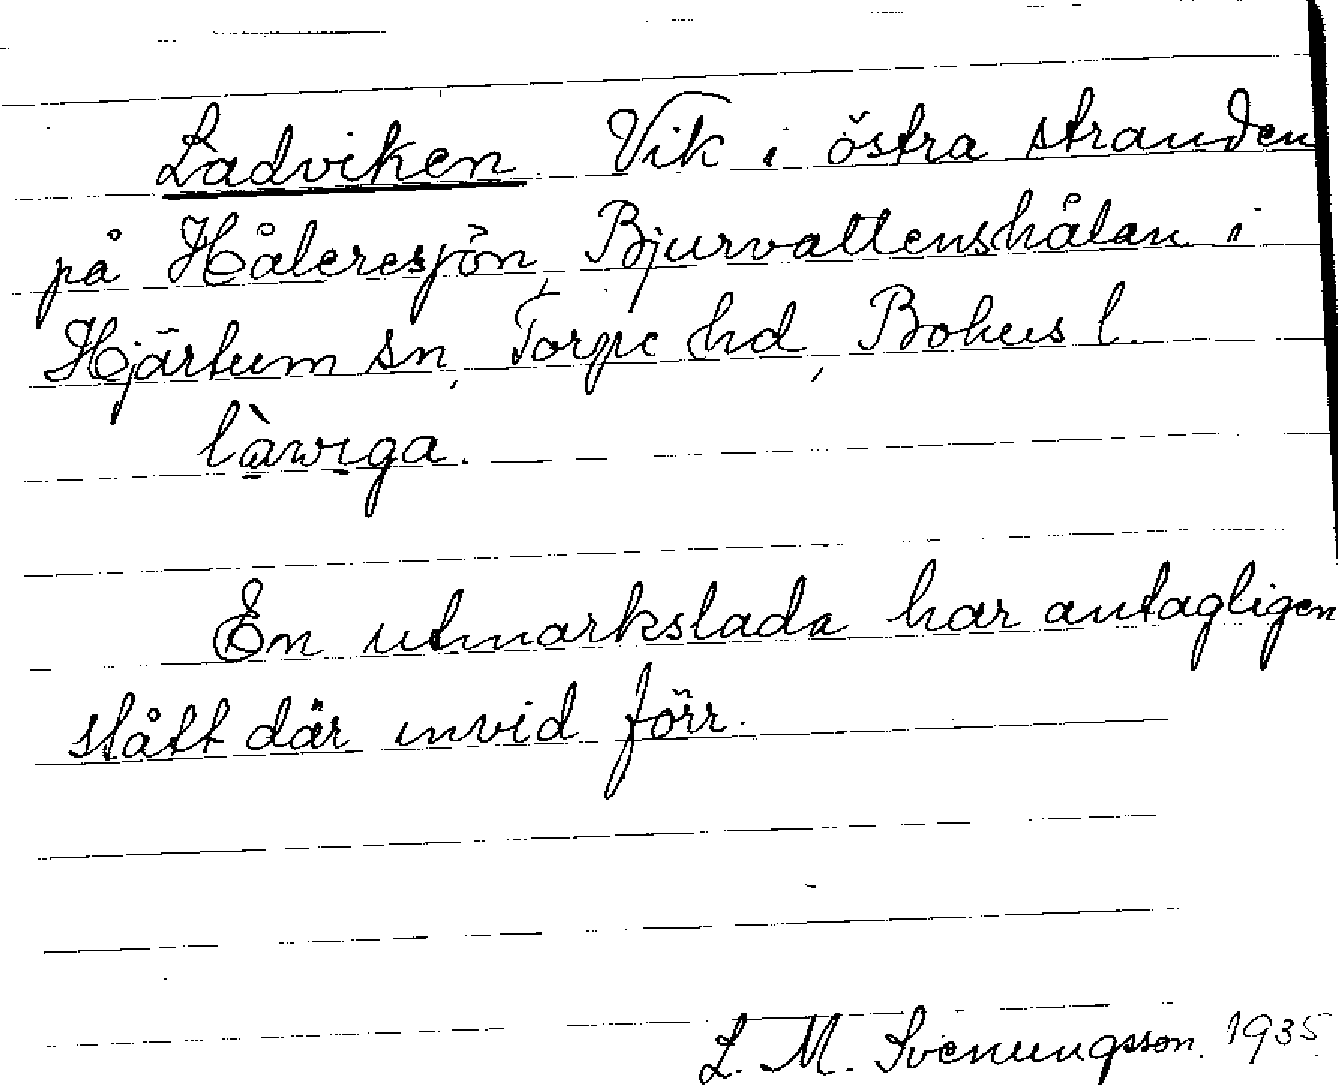 Ladviken Vik i östra stranden
på Håleresjön, Bjurvattenshålan i
Hjärtum sn, Torpe hd, Bohus l.
làwıga.
En utmarkslada har antagligen
stått där invid förr.
L. M. Svenungsson. 1935